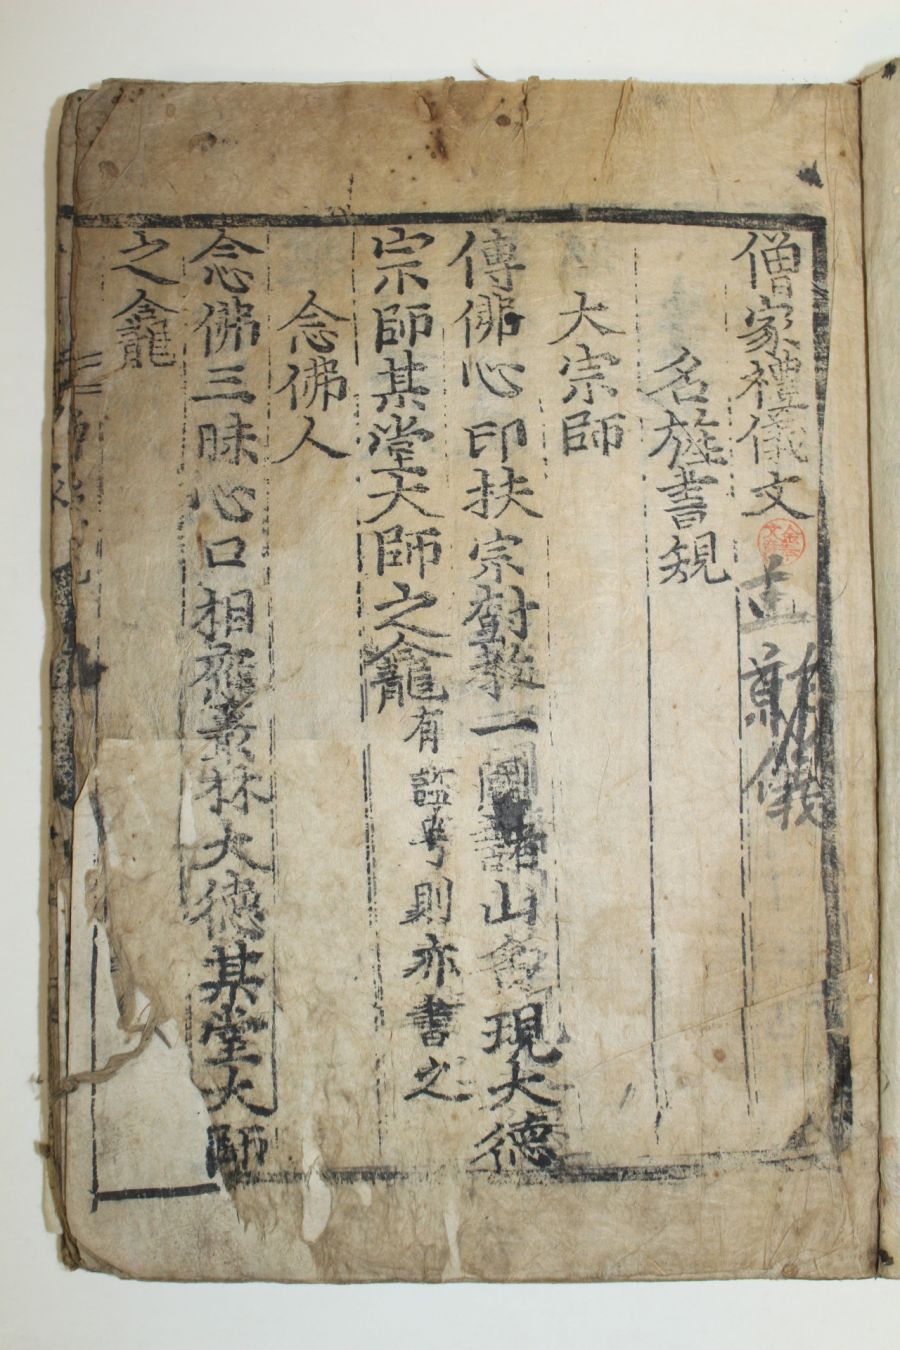 僧家禮儀文
名旌書規
大宗師
傳佛心印扶宗樹教一國諸山會現大德
宗師某堂大師之龕有諡号則亦書之
念佛人
念佛三昧心口相應叢林大德某堂大師
之龕